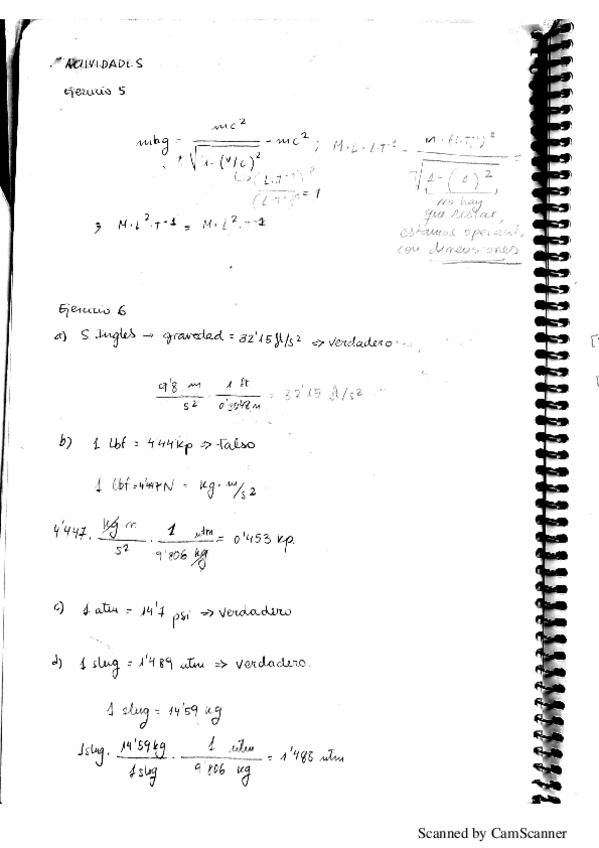 ACTIVIDADES
Ejercicio 5
mhg = mc² / √(1-(v/c)²) - mc² ; M·L·L·T⁻¹ = M·(L·T⁻¹)² / √(1-(1)²) =
(L·T⁻¹)² / (L·T⁻¹)² = 1
no hay
que restar,
estamos operand.
con dimensiones
⇒ M·L²·T⁻¹ = M·L²·T⁻¹
Ejercicio 6
a) S. Ingles → gravedad = 32'15 ft/s² ⇒ verdadero
9'8 m / s² · 1 ft / 0'3048 m = 32'15 ft/s²
b) 1 lbf = 444 kp ⇒ Falso
1 lbf = 4'447 N = kg · m/s²
4'447 · kg m / s² · 1 utm / 9'806 kg = 0'453 kp.
c) 1 atm = 14'7 psi ⇒ verdadero
d) 1 slug = 1'489 utm ⇒ verdadero.
1 slug = 14'59 kg
1 slug · 14'59 kg / 1 slug · 1 utm / 9'806 kg = 1'488 utm
Scanned by CamScanner